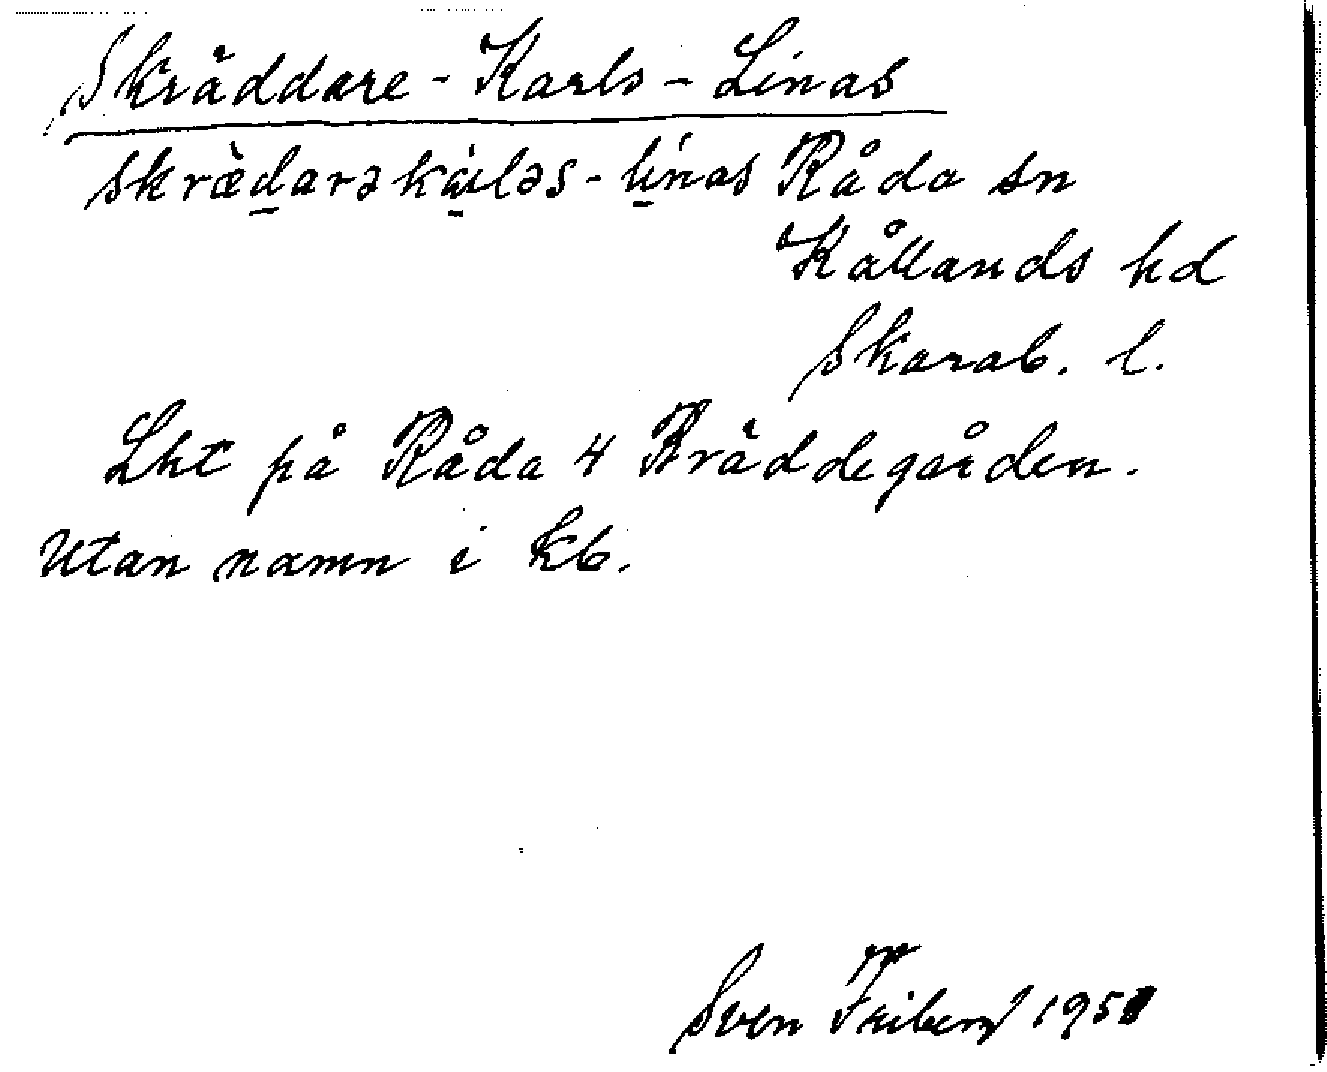 Skräddare-Karls-Linas
Råda sn
Kållands hd
Skarab. l.
Lht på Råda 4 Bräddegården.
Utan namn i kb.
Sven Friberg 1951